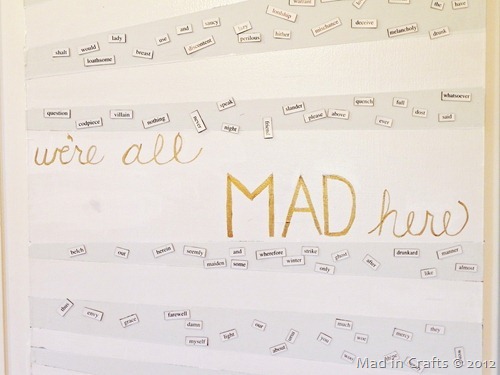 warrant the have
lordship
shalt would lady use and saucy fury mischance deceive
loathsome breast discontent perilous hither melancholy drunk
whatsoever
speak quench full
question villain slander dost
codpiece nothing never please above ever said
night friend
we're all
MAD here
belch our herein seemly and wherefore strike drunkard manner
maiden some winter only ghost after like almost
thus envy grace farewell
damn our much mercy they
myself light about you was
Mad in Crafts © 2012